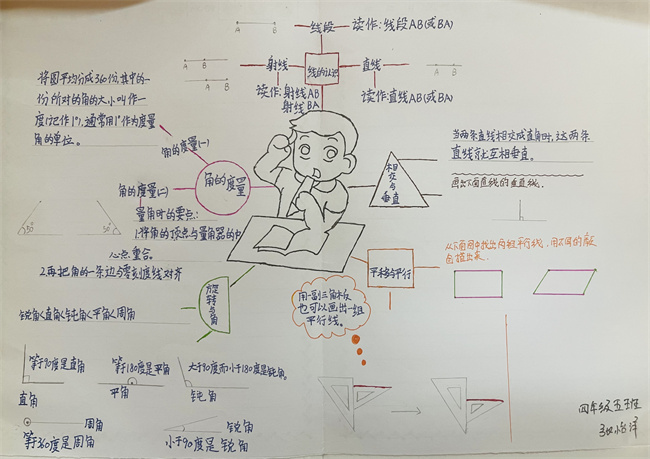 线段 读作:线段AB(或BA)
A B
射线
线的认识
直线
A B
A B
A B
读作:射线AB
射线BA
读作直线AB(或BA)
将圆平均分成360份,其中的一
份所对的角的大小叫作一
度(记作1°),通常用1°作为度量
角的单位。
角的度量(一)
角的度量
角的度量(二)
量角时的要点:
1.将角的顶点与量角器的中
心点重合。
2.再把角的一条边与零刻度线对齐
50°
50°
相交与
垂直
当两条直线相交成直角时,这两条
直线就互相垂直。
画出下面直线的垂直线.
平移与平行
从下面图中找出两组平行线,用不同的颜
色描出来.
用一副三角板
也可以画出一组
平行线。
旋转与角
锐角<直角<钝角<平角<周角
等于90度是直角
直角
等于180度是平角
平角
大于90度而小于180度是钝角。
钝角
周角
等于360度是周角
锐角
小于90度是锐角
四年级五班